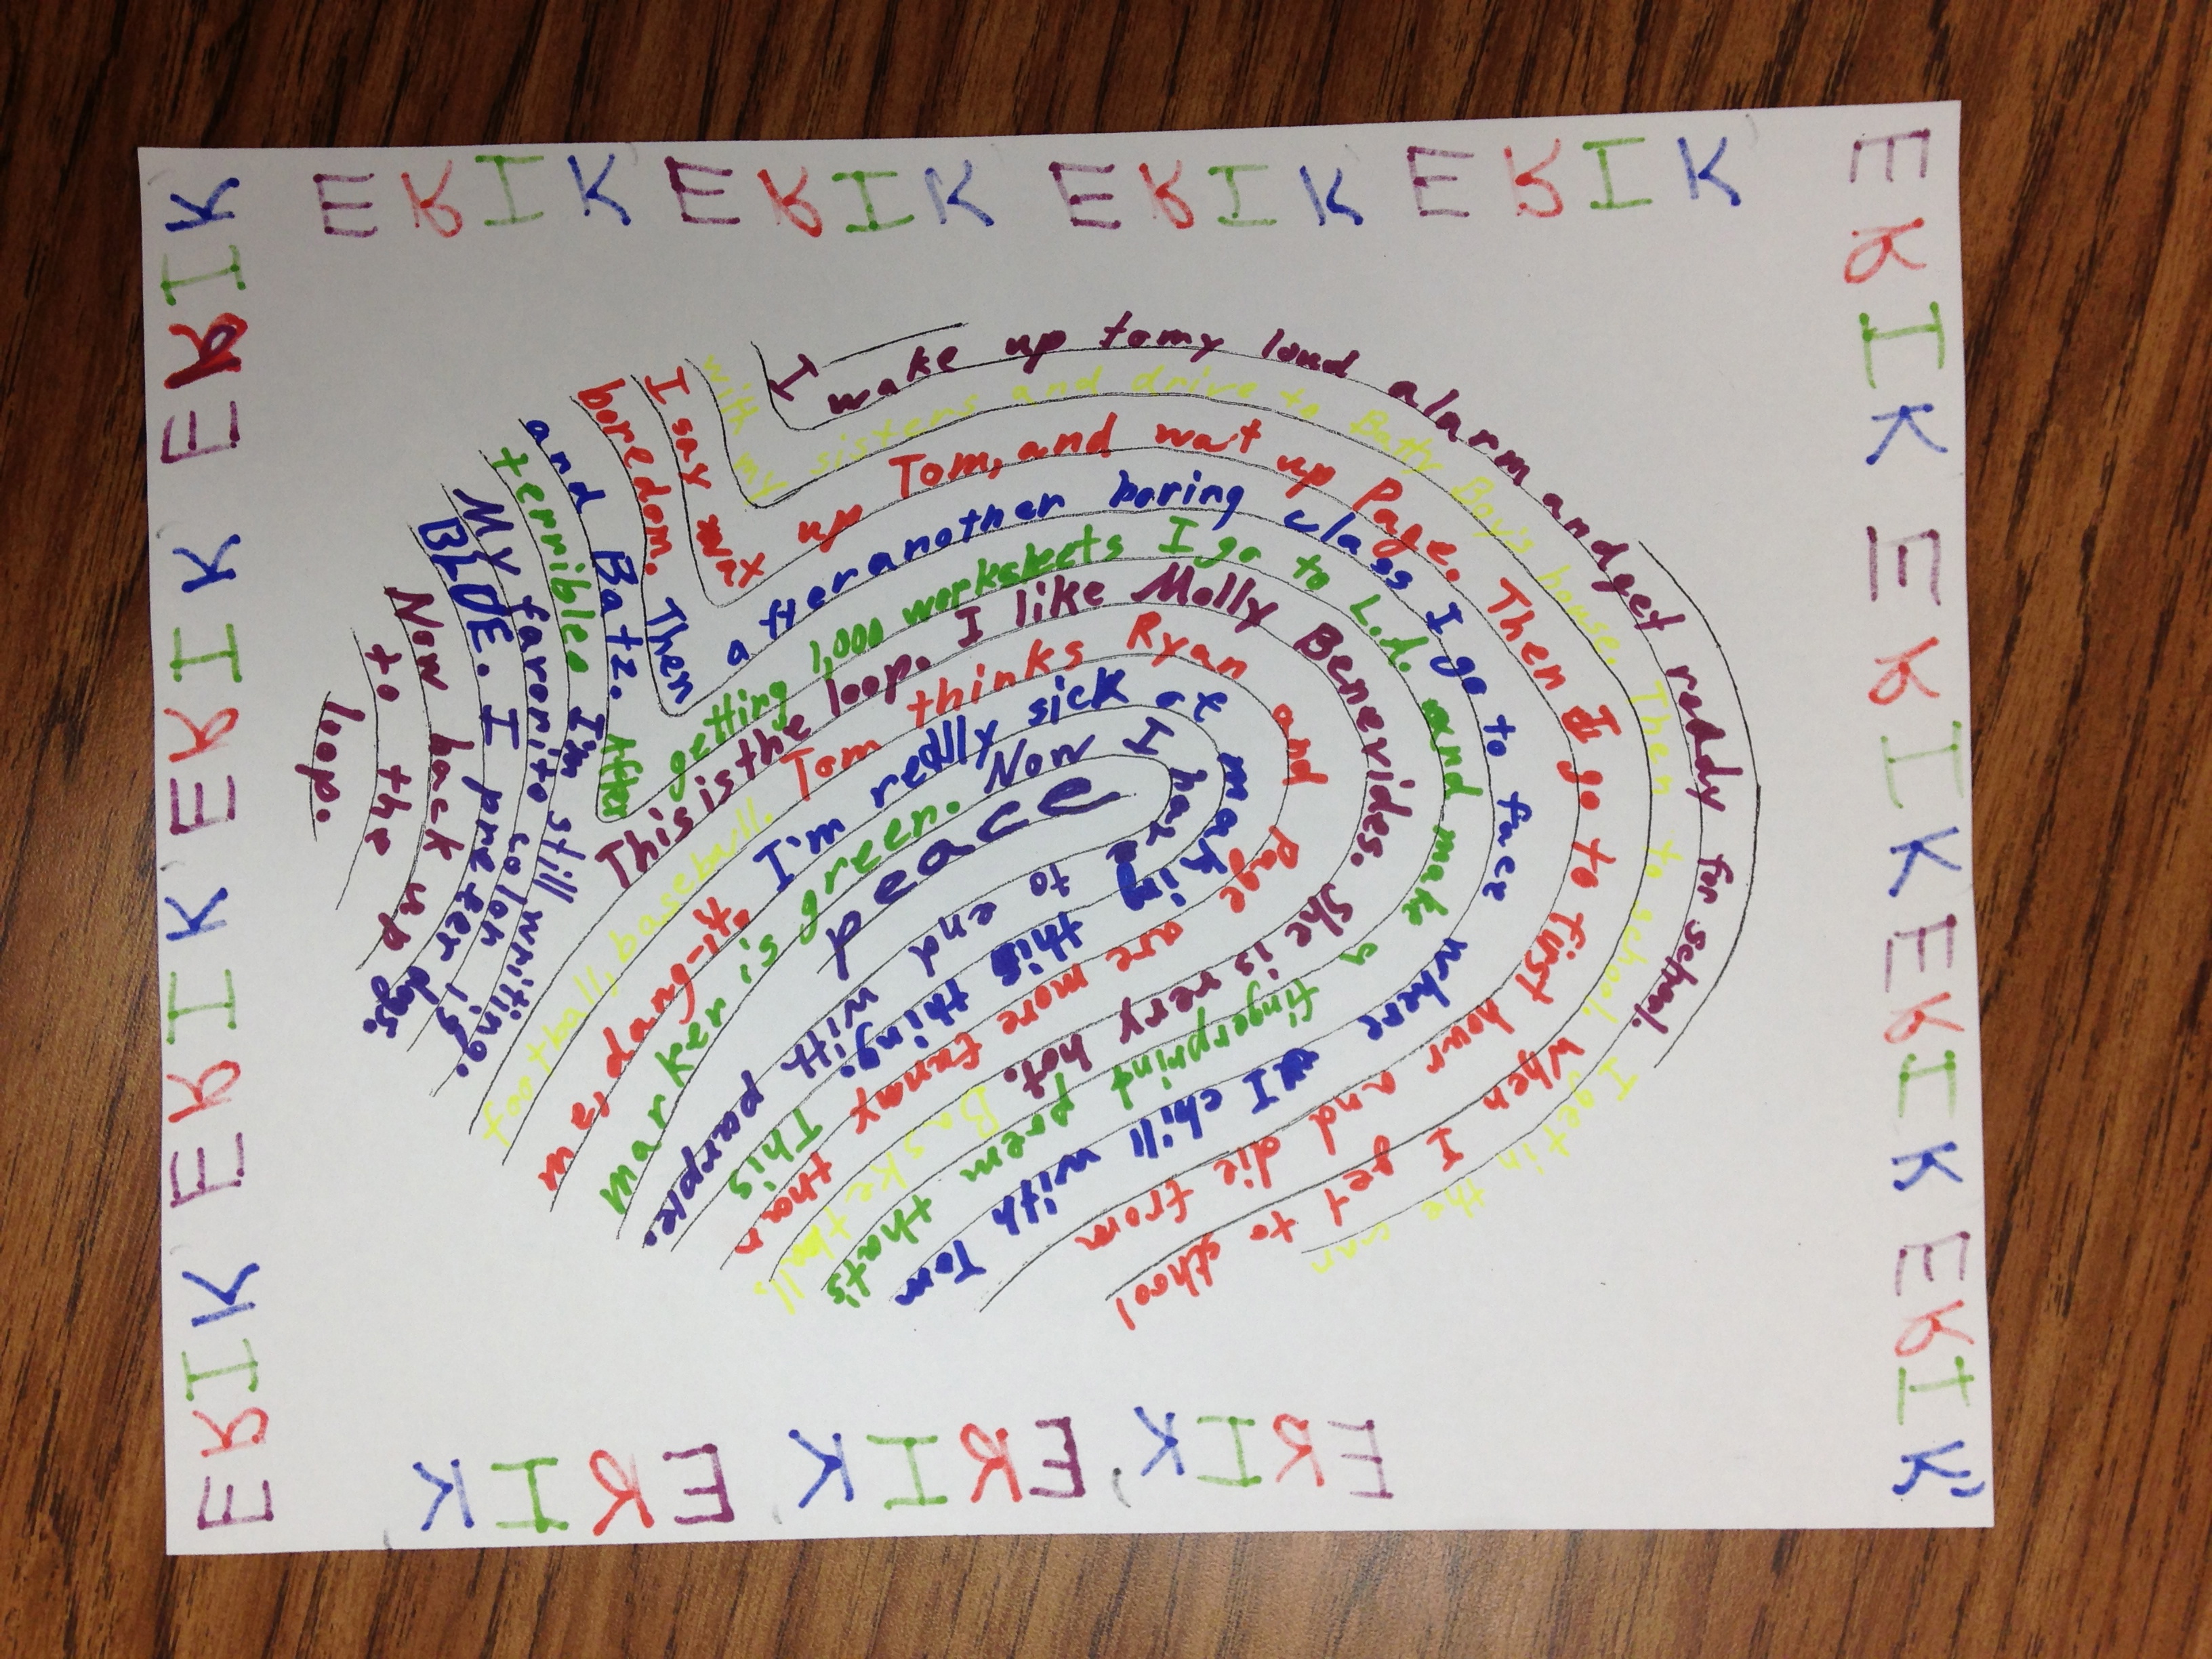 ERIK ERIK ERIK ERIK
ERIK ERIK ERIK ERIK
ERIK ERIK ERIK
ERIK ERIK ERIK ERIK
I wake up tomy loud alarm andget ready for school. I get in the car
with my sisters and drive to Batty Boy's house. Then to school. When I get to sthool
I say wax up Tom, and wat up Page. Then I go to first hour and die from
boredom. Then a fter another boring class I go to face where I chill with Tom
and Batz. After getting 1,000 worksheets I go to L.A. and make a fingerprint prem that's
terrible. I'm still writing.
This is the loop. I like Molly Benevides. She is very hot. Basketball,
football, baseball. Tom thinks Ryan and Page are more funny than
I'm really sick at making this thing. This
marker is green. Now I have to end with parpke.
peace
My favorite color is
BLUE. I prefer dogs.
Now back up
to the
loop.